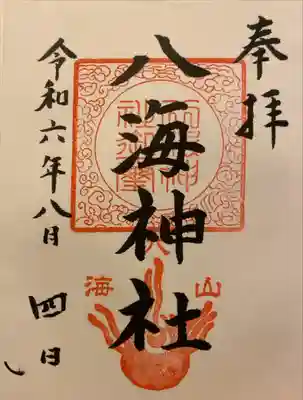 奉拝
八海神社
令和六年八月四日
山
海